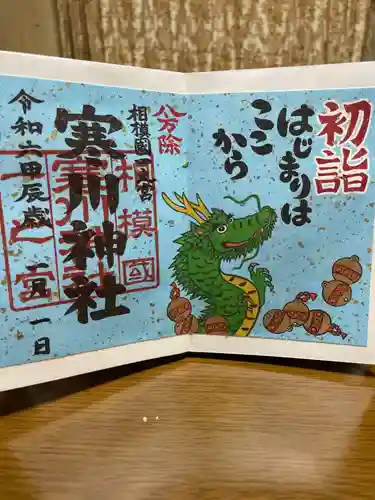 初詣
はじまりは
ここ
から
八方除
相模國一之宮
寒川神社
相模國
一之宮
寒川神社
令和六甲辰歳 一月 一日